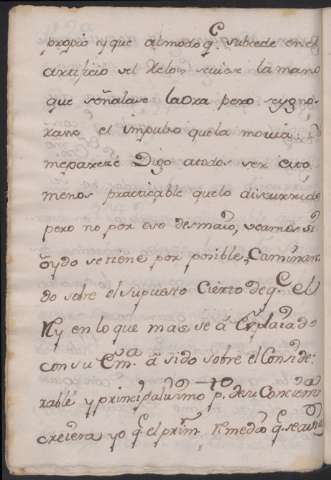 propio y que al modo q.e subcede en el
artificio del Relox se viese la mano
que señalase la ora pero se ygno-
rase el impulso que la movia:
me parece Digo a todos ser esto
menos practicable que lo discurrido
pero no por eso desmayo, veamos si
oydo se tiene por posible, Caminan-
do sobre el supuesto Cierto de q.e el
Rey en lo que mas se á Complacido
con su E.ma á sido sobre el Conside-
rable y principalisimo p. de su Concien
creiera yo q.e el prim. Remedio q.e